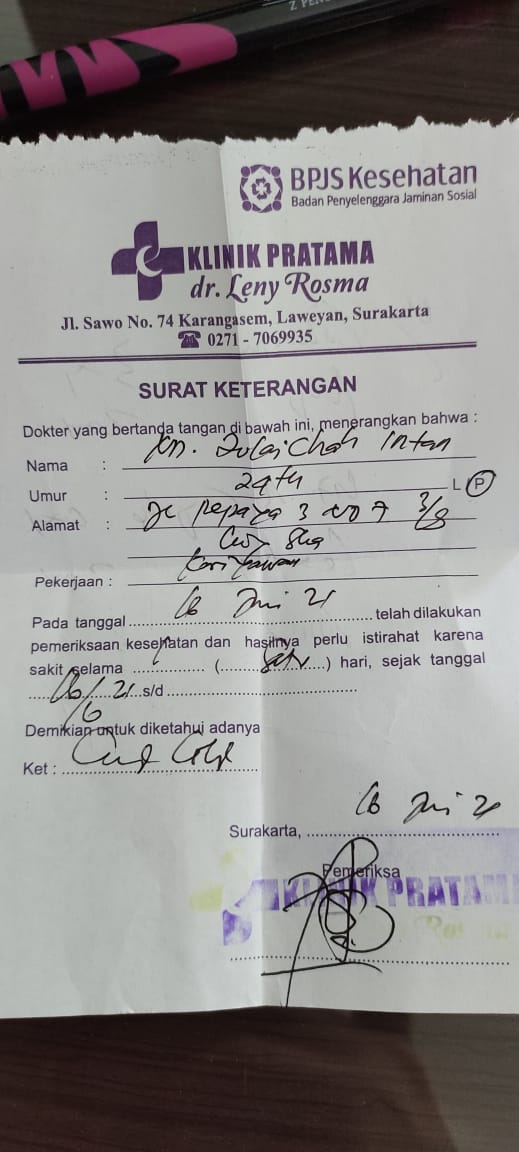 Z PEN
BPJS Kesehatan
Badan Penyelenggara Jaminan Sosial
KLINIK PRATAMA
dr. Leny Rosma
Jl. Sawo No. 74 Karangasem, Laweyan, Surakarta
☎ 0271 - 7069935
SURAT KETERANGAN
Dokter yang bertanda tangan di bawah ini, menerangkan bahwa :
Nama : Intan
Umur : 24 th L P
Alamat : Jl pepaya 3 3/8
Pekerjaan : Karyawan
Pada tanggal 16 Juni 21 telah dilakukan
pemeriksaan kesehatan dan hasilnya perlu istirahat karena
sakit selama 1 (satu) hari, sejak tanggal
16/6 21 s/d
Demikian untuk diketahui adanya
Ket :
16 Juni 21
Surakarta,
Pemeriksa
KLINIK PRATAMA